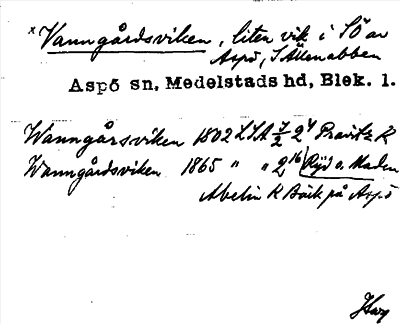 x Vamngårdsviken, liten vik i SÖ av
Aspö, S Ällenabben
Aspö sn, Medelstads hd, Blek. l.
Wamngårsviken 1802 LSA 7/2 2⁴ Pravitz K
Wamngårdsviken 1865 " " 2¹⁶ Röjd o. Maden
Abelin K Bäck på Aspö